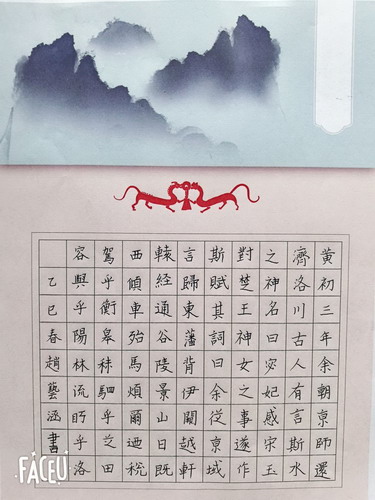 黄初三年余朝京師還
濟洛川古人有言斯水
之神名曰宓妃感宋玉
對楚王神女之事遂作
斯賦其詞曰余從京域
言歸東藩背伊闕越軒
轅経通谷陵景山日既
西傾車殆馬煩爾迺税
駕乎衡皋秣駟乎芝田
容與乎陽林流眄乎洛
乙巳春趙藝涵書
FACEU